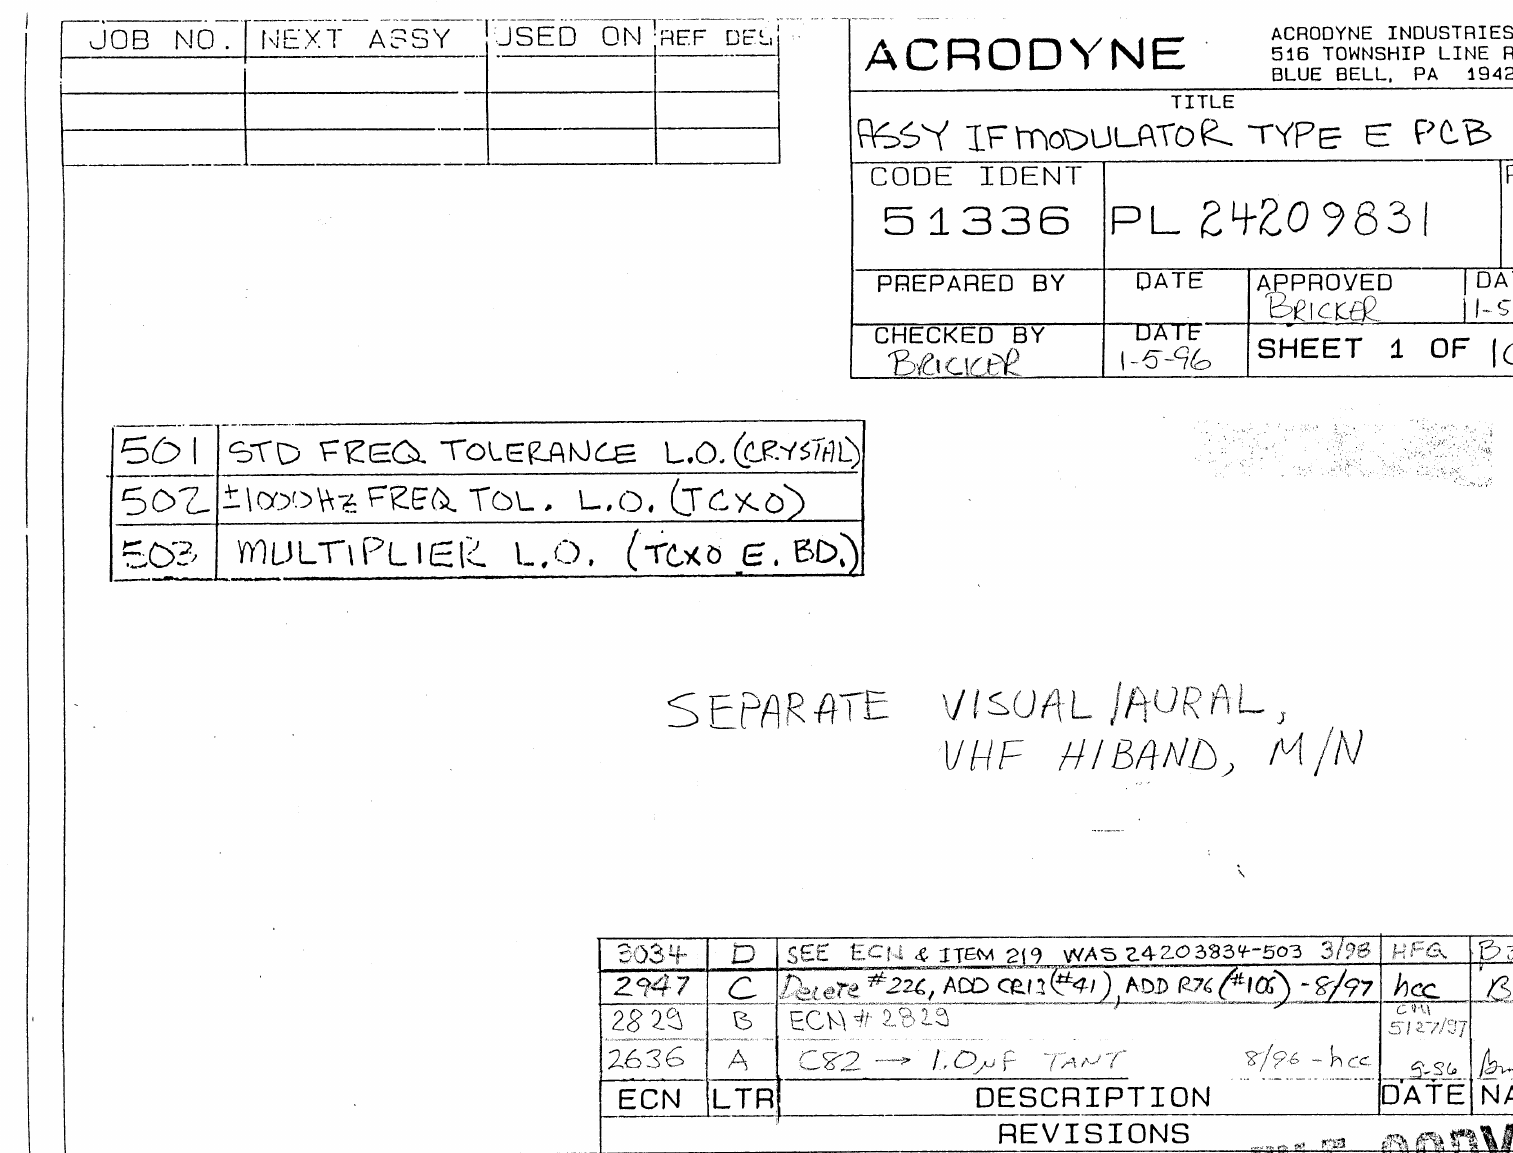 JOB NO. NEXT ASSY USED ON REF DES
ACRODYNE
ACRODYNE INDUSTRIES
516 TOWNSHIP LINE R
BLUE BELL, PA 1942
TITLE
ASSY IF MODULATOR TYPE E PCB
CODE IDENT
51336 PL 24209831
PREPARED BY DATE APPROVED DA
BRICKER 1-5
CHECKED BY DATE
BRICKER 1-5-96 SHEET 1 OF
501 STD FREQ TOLERANCE L.O. (CRYSTAL)
502 ±1000Hz FREQ TOL. L.O. (TCXO)
503 MULTIPLIER L.O. (TCXO E. BD.)
SEPARATE VISUAL/AURAL,
VHF HIBAND, M/N
3034 D SEE ECN & ITEM 219 WAS 24203834-503 3/98 HFG
2947 C Delete #226, ADD CR13 (#41), ADD R76 (#106) - 8/97 hcc B
2829 B ECN # 2829 5/27/97
2636 A C82 → 1.0µF TANT 8/96 - hcc
ECN LTR DESCRIPTION DATE NA
REVISIONS